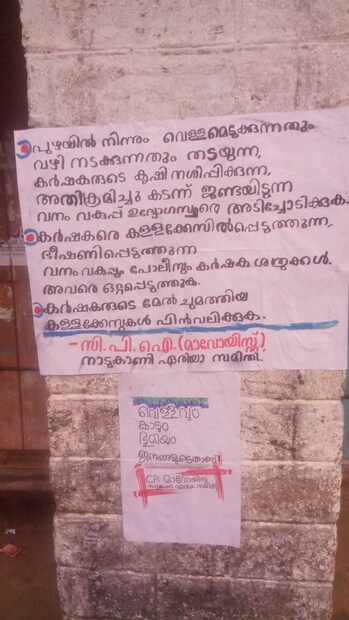 പുഴയിൽ നിന്നും വെള്ളമെടുക്കുന്നതും
വഴി നടക്കുന്നതും തടയുന്ന,
കർഷകരുടെ കൃഷി നശിപ്പിക്കുന്ന,
അതിക്രമിച്ചു കടന്ന് ജണ്ടയിടുന്ന
വനം വകുപ്പ് ഉദ്യോഗസ്ഥരെ അടിച്ചോടിക്കുക.
കർഷകരെ കള്ളക്കേസിൽപ്പെടുത്തുന്ന,
ഭീഷണിപ്പെടുത്തുന്ന
വനം വകുപ്പും പോലീസും കർഷക ശത്രുക്കൾ.
അവരെ ഒറ്റപ്പെടുത്തുക.
കർഷകരുടെ മേൽ ചുമത്തിയ
കള്ളക്കേസുകൾ പിൻവലിക്കുക.
- സി.പി.ഐ.(മാവോയിസ്റ്റ്)
നാടുകാണി ഏരിയാ സമിതി.
വെള്ളവും
കാടും
ഭൂമിയും
ജനങ്ങളുടെതാണ്
CPI മാവോയിസ്റ്റ്
നാടുകാണി ഏരിയാ സമിതി